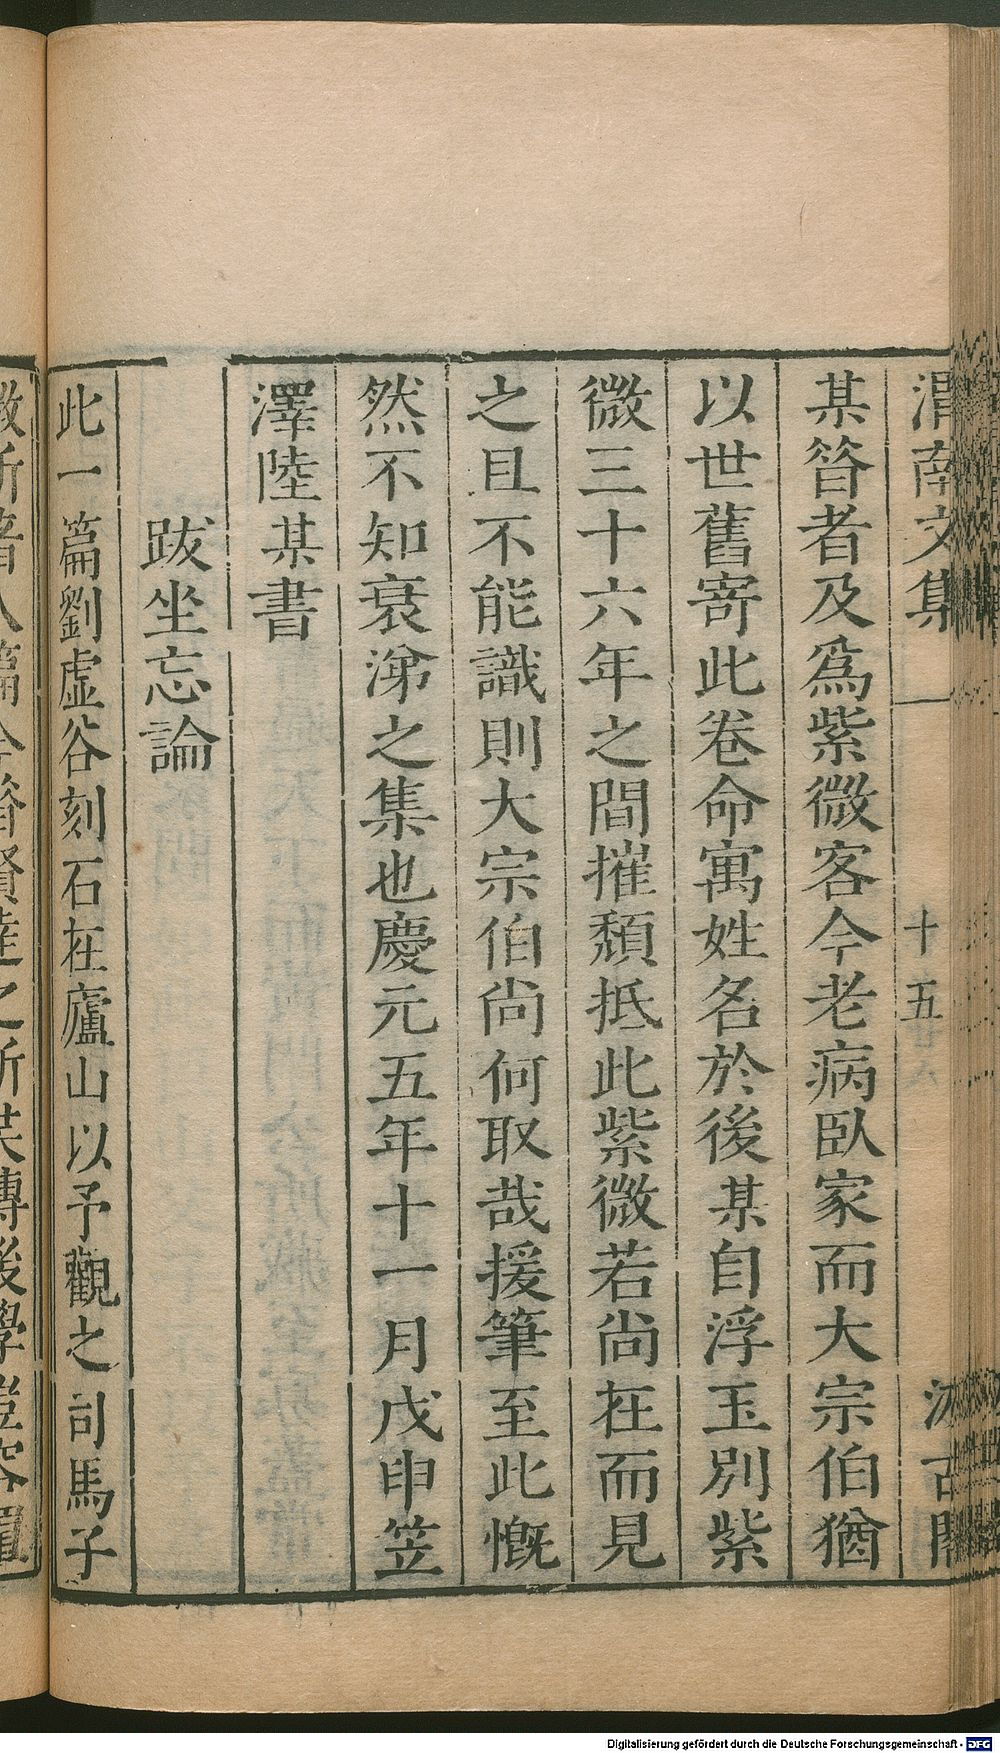 渭南文集 十五 汲古閣
某昝者及爲紫微客今老病臥家而大宗伯猶
以世舊寄此卷命寓姓名於後某自浮玉別紫
微三十六年之間摧頹抵此紫微若尚在而見
之且不能識則大宗伯尚何取哉援筆至此慨
然不知衰涕之集也慶元五年十一月戊申笠
澤陸某書
跋坐忘論
此一篇劉虛谷刻石在廬山以予觀之司馬子
微所著八篇今昝賢達之所共傳後學豈容
Digitalisierung gefördert durch die Deutsche Forschungsgemeinschaft - DFG